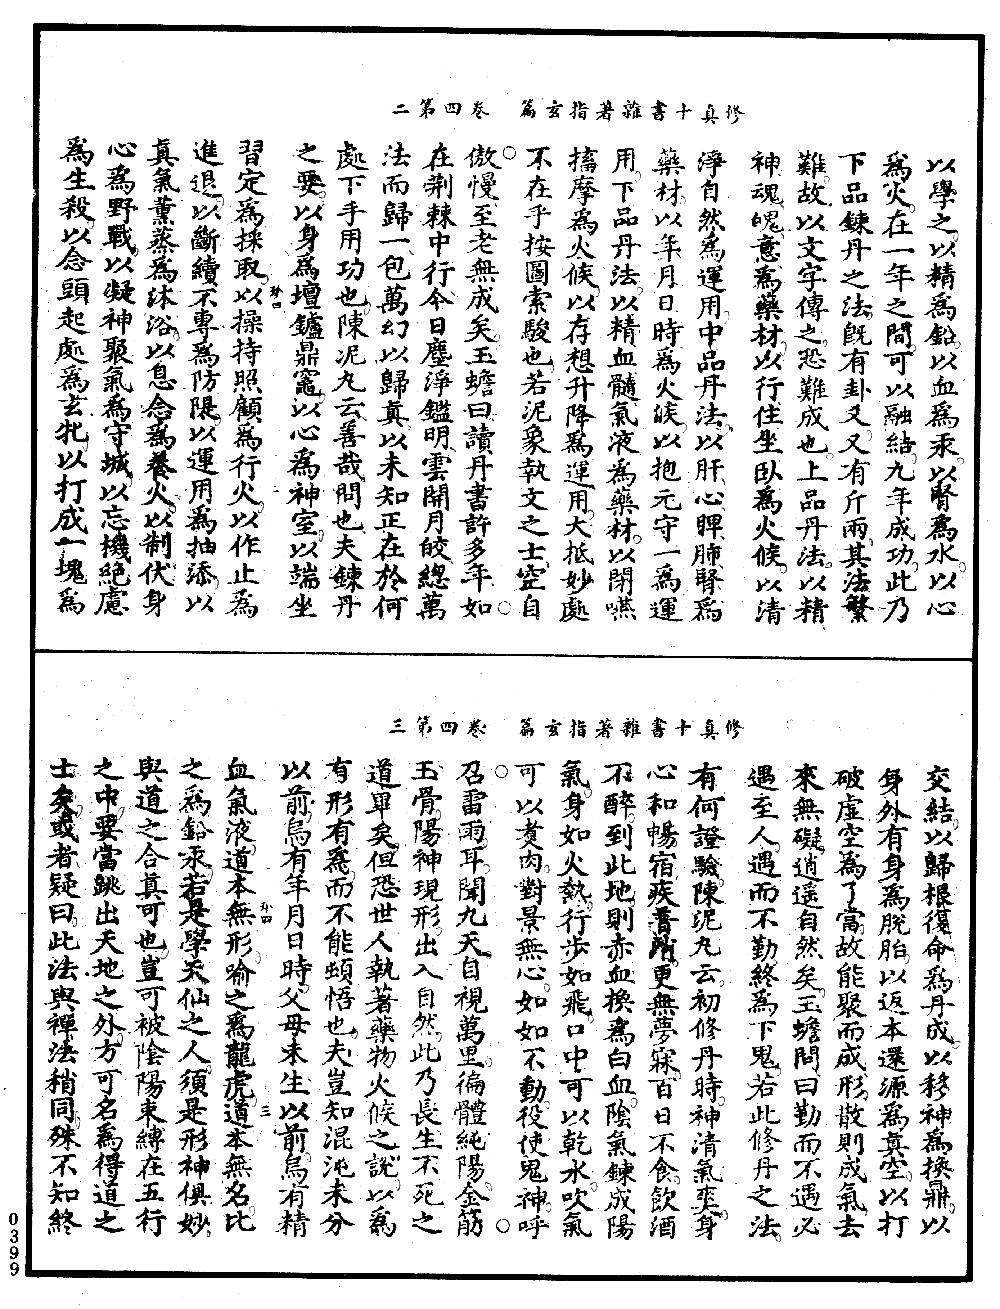 修真十書雜著指玄篇　卷四第二
以學之以精為鉛以血為汞以腎為水以心
為火在一年之間可以融結九年成功此乃
下品鍊丹之法既有卦爻又有斤兩其法繁
難故以文字傳之恐難成也上品丹法以精
神魂魄意為藥材以行住坐臥為火候以清
淨自然為運用中品丹法以肝心脾肺腎為
藥材以年月日時為火候以抱元守一為運
用下品丹法以精血髓氣液為藥材以閉嚥
搐摩為火候以存想升降為運用大抵妙處
不在乎按圖索駿也若泥象執文之士空自
傲慢至老無成矣玉蟾曰讀丹書許多年如
在荊棘中行今日塵淨鑑明雲開月皎總萬
法而歸一包萬幻以歸真以未知正在於何
處下手用功也陳泥丸云善哉問也夫鍊丹
之要以身為壇鑪鼎竈以心為神室以端坐
習定為採取以操持照顧為行火以作止為
進退以斷續不專為防隄以運用為抽添以
真氣薰蒸為沐浴以息念為養火以制伏身
心為野戰以凝神聚氣為守城以忘機絕慮
為生殺以念頭起處為玄牝以打成一塊為
修真十書雜著指玄篇　卷四第三
交結以歸根復命為丹成以移神為換鼎以
身外有身為脫胎以返本還源為真空以打
破虛空為了當故能聚而成形散則成氣去
來無礙逍遙自然矣玉蟾問曰勤而不遇必
遇至人遇而不勤終為下鬼若此修丹之法
有何證驗陳泥丸云初修丹時神清氣爽身
心和暢宿疾普消更無夢寐百日不食飲酒
不醉到此地則赤血換為白血陰氣鍊成陽
氣身如火熱行步如飛口中可以乾水吹氣
可以煑肉對景無心如如不動役使鬼神呼
召雷雨耳聞九天目視萬里徧體純陽金筋
玉骨陽神現形出入自然此乃長生不死之
道畢矣但恐世人執著藥物火候之說以為
有形有為而不能頓悟也夫豈知混沌未分
以前烏有年月日時父母未生以前烏有精
血氣液道本無形喻之為龍虎道本無名比
之為鉛汞若是學天仙之人須是形神俱妙
與道之合真可也豈可被陰陽束縛在五行
之中要當跳出天地之外方可名為得道之
士矣或者疑曰此法與禪法稍同殊不知終
0399